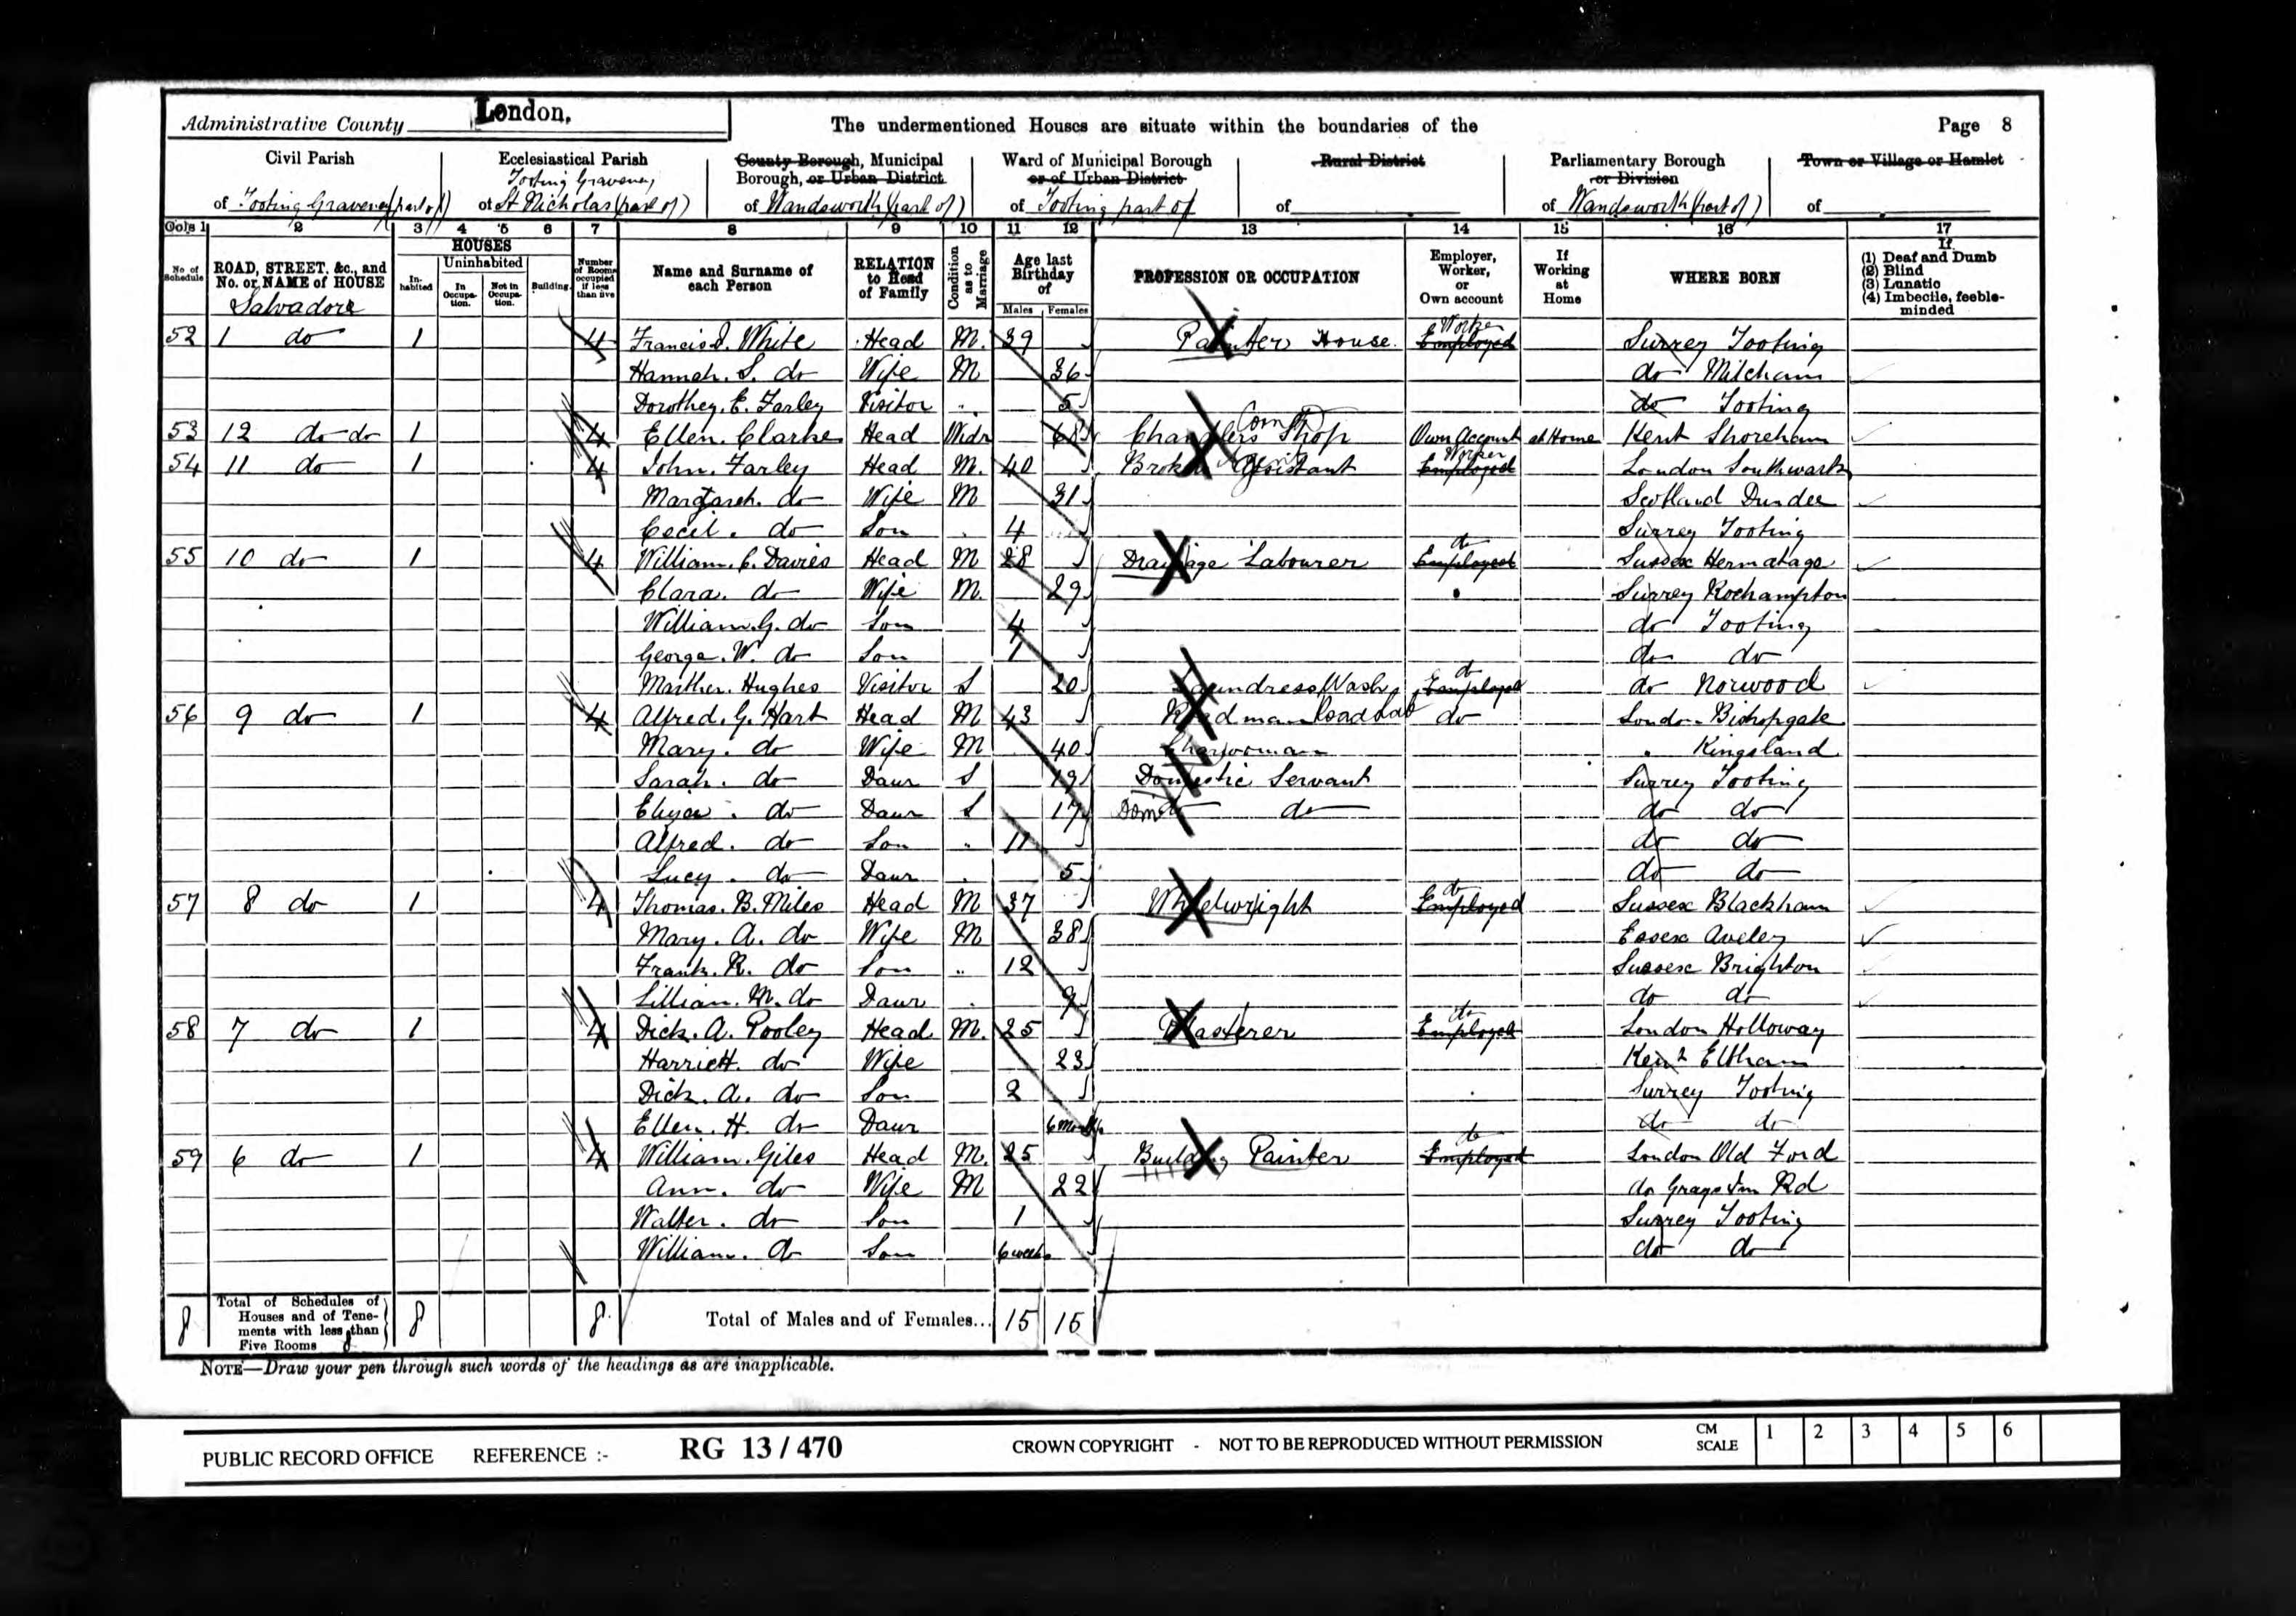 Administrative County London.
The undermentioned Houses are situate within the boundaries of the
Page 8
Civil Parish
of Tooting Graveney (part of)
Ecclesiastical Parish
Tooting Graveney
of St Nicholas (part of)
County Borough, Municipal
Borough, or Urban District
of Wandsworth (part of)
Ward of Municipal Borough
or of Urban District
of Tooting part of
Rural District
of
Parliamentary Borough
or Division
of Wandsworth (part of)
Town or Village or Hamlet
of
Cols 1 2 3 4 5 6 7 8 9 10 11 12 13 14 15 16 17
No of Schedule
ROAD, STREET, &c., and No. or NAME of HOUSE
HOUSES
In-habited
Uninhabited
In Occupa-tion.
Not in Occupa-tion.
Building.
Number of Rooms occupied if less than five
Name and Surname of each Person
RELATION to Head of Family
Condition as to Marriage
Age last Birthday of
Males Females
PROFESSION OR OCCUPATION
Employer, Worker, or Own account
If Working at Home
WHERE BORN
If
(1) Deaf and Dumb
(2) Blind
(3) Lunatic
(4) Imbecile, feeble-minded
Salvadore
52 1 do 1 4 Francis J. White Head M. 39 Painter House Employed Worker Surrey Tooting
Hannah. S. do Wife M 36 do Mitcham
Dorothey. E. Farley Visitor 5 do Tooting
53 12 do do 1 4 Ellen. Clarke Head Widr 68 Chandlers Shop Own Account at Home Kent Shoreham
54 11 do 1 4 John. Farley Head M. 40 Broker Assistant Employed Worker London Southwark
Margaret. do Wife M 31 Scotland Dundee
Cecil. do Son 4 Surrey Tooting
55 10 do 1 4 William. C. Davies Head M 28 Drainage Labourer Employed do Sussex Hermatage
Clara. do Wife M. 29 Surrey Roehampton
William. G. do Son 4 do Tooting
George. W. do Son 1 do do
Marther. Hughes Visitor S 20 Laundress Wash Employed do do Norwood
56 9 do 1 4 Alfred. G. Hart Head M 43 Roadman Road Lab do London Bishopgate
Mary. do Wife M 40 Charwoman " Kingsland
Sarah. do Daur S 19 Domestic Servant Surrey Tooting
Eliza. do Daur S 17 Dom do do do do
Alfred. do Son 11 do do
Lucy. do Daur 5 do do
57 8 do 1 4 Thomas. B. Miles Head M 37 Wheelwright Employed do Sussex Blackham
Mary. A. do Wife M 38 Essex Aveley
Frank. R. do Son 12 Sussex Brighton
Lillian. M. do Daur 9 do do
58 7 do 1 4 Dick. A. Pooley Head M. 25 Plasterer Employed do London Holloway
Harriett. do Wife 23 Kent Eltham
Dick. A. do Son 2 Surrey Tooting
Ellen. H. do Daur 6 Months do do
59 6 do 1 4 William. Giles Head M. 25 Building Painter Employed do London Old Ford
Ann. do Wife M 22 do Grays Inn Rd
Walter. do Son 1 Surrey Tooting
William. do Son 6 weeks do do
8 Total of Schedules of Houses and of Tene-ments with less than Five Rooms 8 8 Total of Males and of Females... 15 15
NOTE—Draw your pen through such words of the headings as are inapplicable.
PUBLIC RECORD OFFICE REFERENCE :- RG 13 / 470 CROWN COPYRIGHT - NOT TO BE REPRODUCED WITHOUT PERMISSION CM SCALE 1 2 3 4 5 6